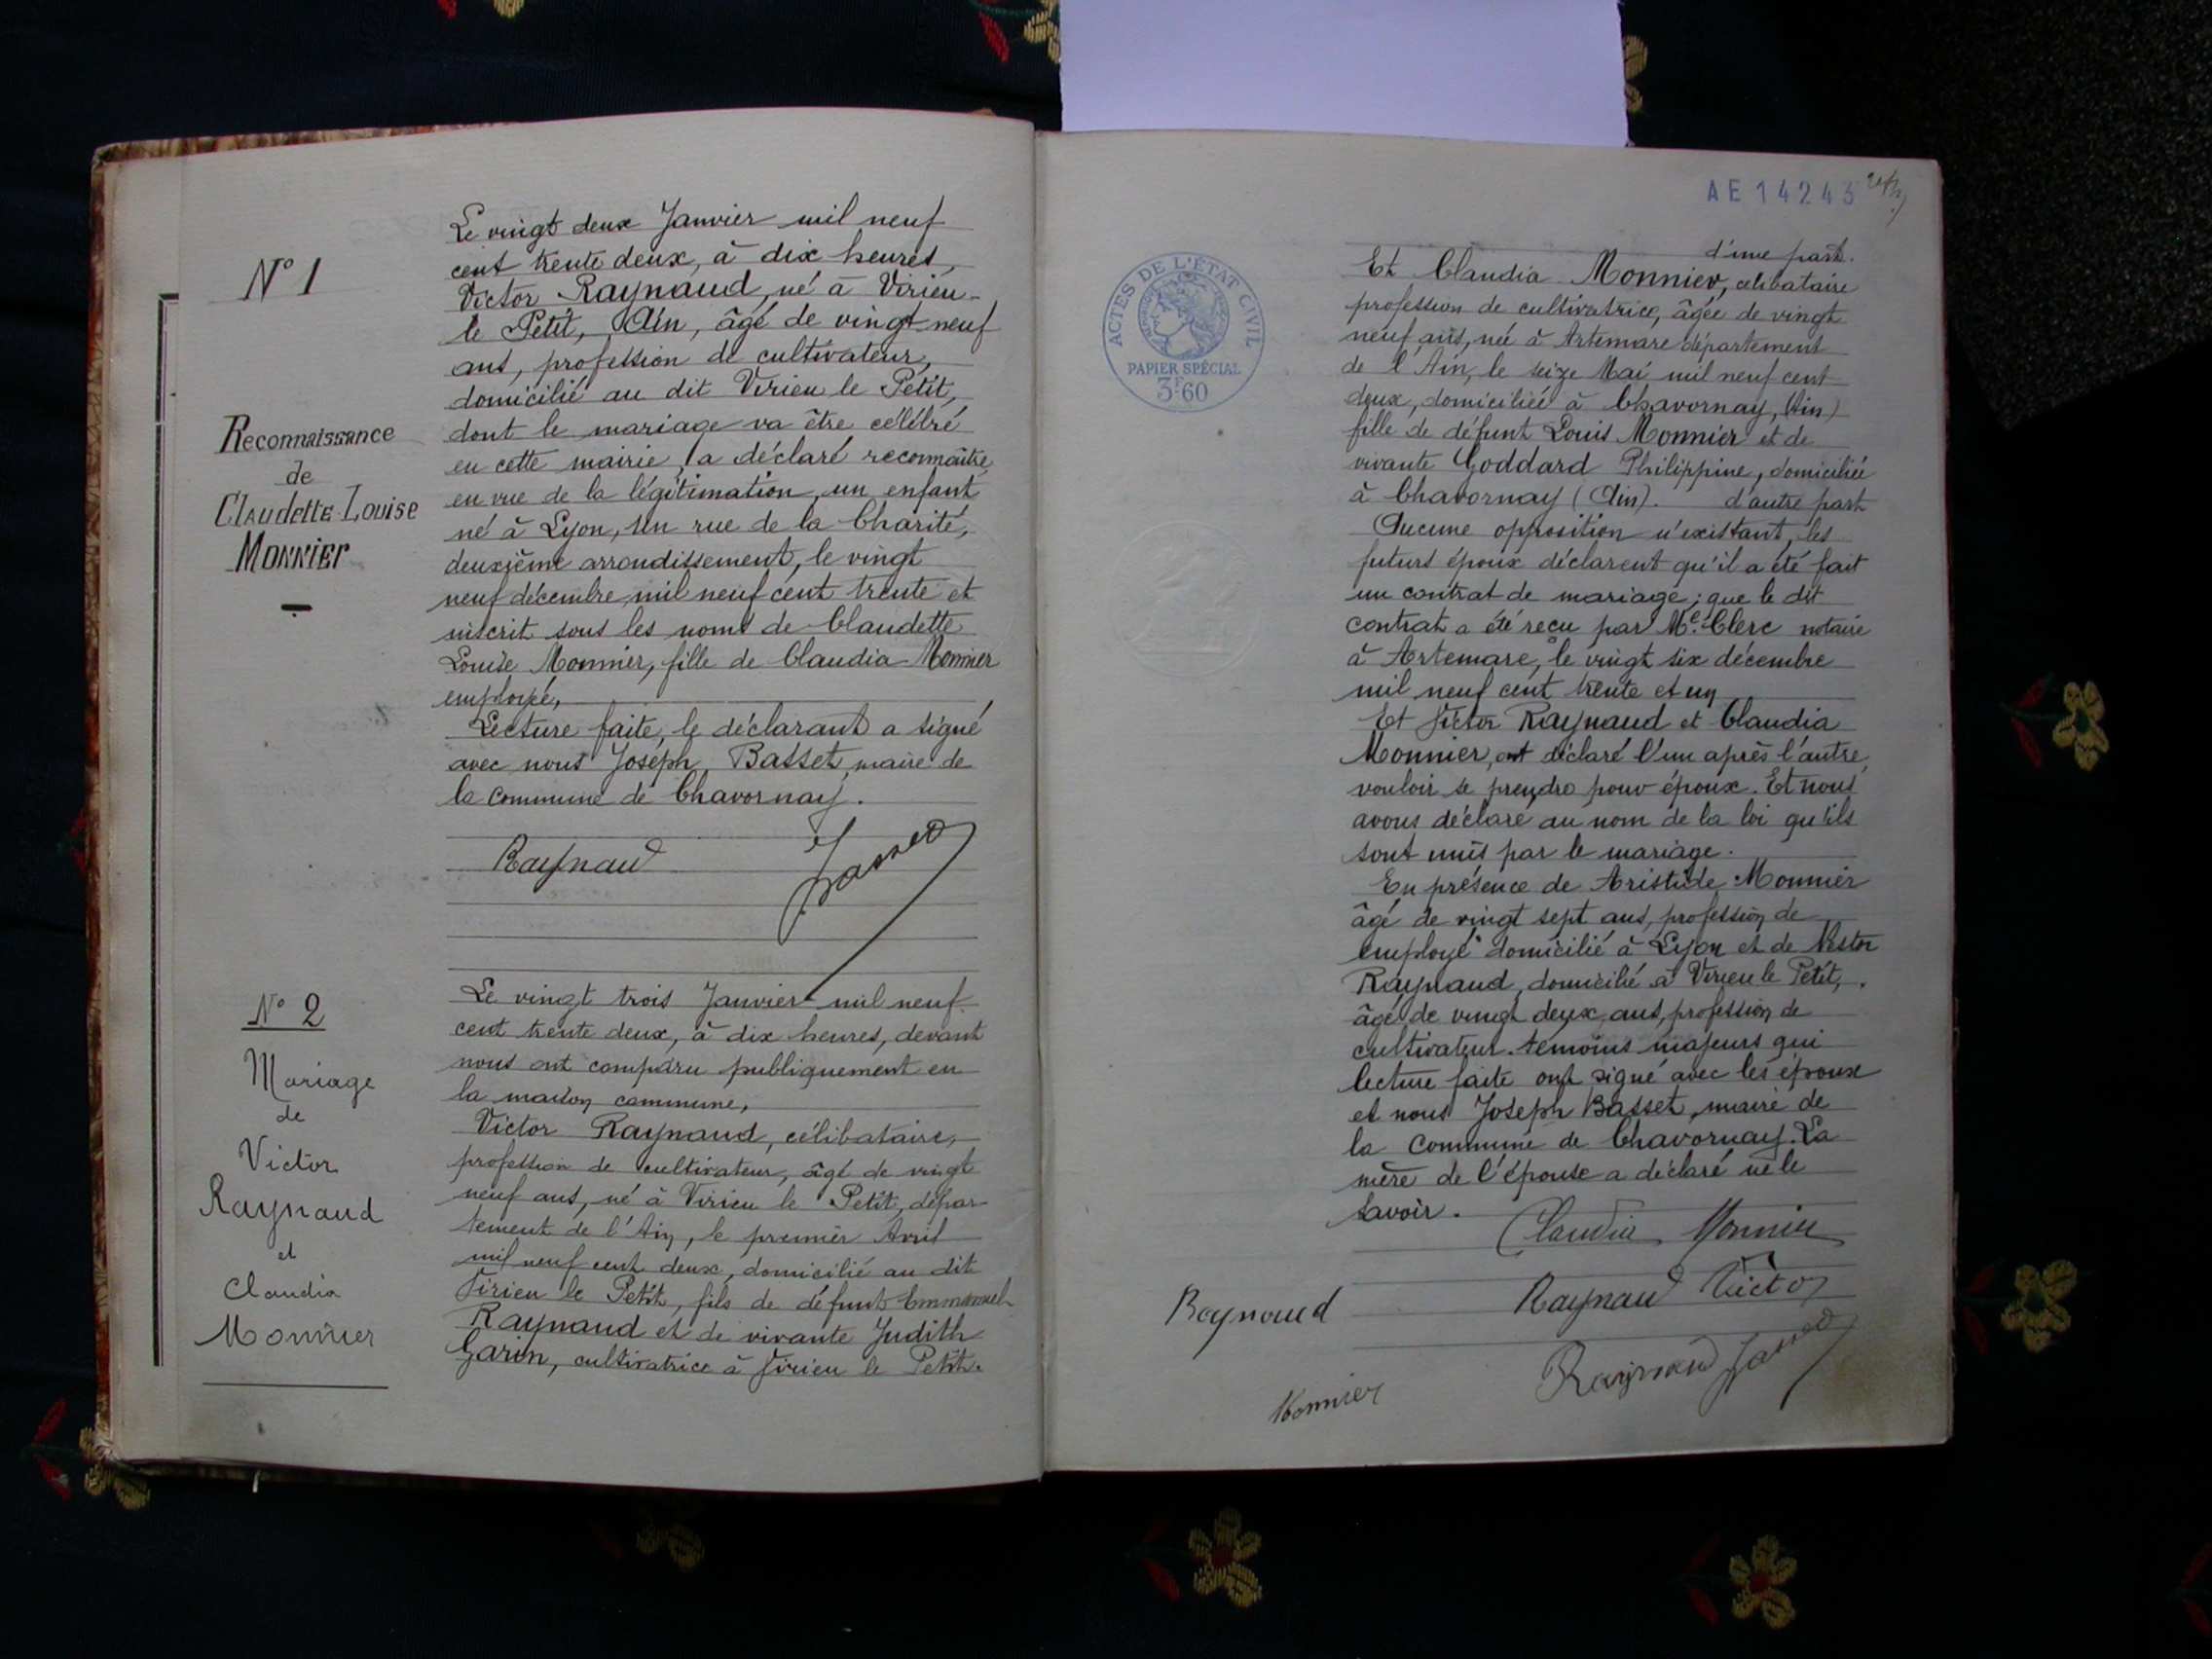 N° 1
Reconnaissance
de
Claudette Louise
Monnier
Le vingt deux Janvier mil neuf
cent trente deux, à dix heures,
Victor Raynaud, né à Virieu-
le Petit, Ain, âgé de vingt neuf
ans, profession de cultivateur,
domicilié au dit Virieu le Petit,
dont le mariage va être célébré
en cette mairie, a déclaré reconnaître
en vue de la légitimation, un enfant
né à Lyon, un rue de la Charité,
deuxième arrondissement, le vingt
neuf décembre mil neuf cent trente et
inscrit sous les noms de Claudette
Louise Monnier, fille de Claudia Monnier
employée,
Lecture faite, le déclarant a signé
avec nous Joseph Basset, maire de
la commune de Chavornay.
Raynaud
JBasset
N° 2
Mariage
de
Victor
Raynaud
et
Claudia
Monnier
Le vingt trois Janvier mil neuf
cent trente deux, à dix heures, devant
nous ont comparu publiquement en
la maison commune,
Victor Raynaud, célibataire,
profession de cultivateur, âgé de vingt
neuf ans, né à Virieu le Petit, dépar
tement de l'Ain, le premier Avril
mil neuf cent deux, domicilié au dit
Virieu le Petit, fils de défunt Emmanuel
Raynaud et de vivante Judith
Garin, cultivatrice à Virieu le Petit.
AE 14243
ACTES DE L'ÉTAT CIVIL
PAPIER SPÉCIAL
3F60
d'une part.
Et Claudia Monnier, célibataire
profession de cultivatrice, âgée de vingt
neuf ans, née à Artemare département
de l'Ain, le seize Mai mil neuf cent
deux, domiciliée à Chavornay, (Ain)
fille de défunt Louis Monnier et de
vivante Goddard Philippine, domiciliée
à Chavornay (Ain). d'autre part
Aucune opposition n'existant, les
futurs époux déclarent qu'il a été fait
un contrat de mariage; que le dit
contrat a été reçu par Me. Clerc notaire
à Artemare, le vingt six décembre
mil neuf cent trente et un
Et Victor Raynaud et Claudia
Monnier, ont déclaré l'un après l'autre,
vouloir se prendre pour époux. Et nous
avons déclaré au nom de la loi qu'ils
sont unis par le mariage.
En présence de Aristide Monnier
âgé de vingt sept ans, profession de
employé domicilié à Lyon et de Nestor
Raynaud, domicilié à Virieu le Petit,
âgé de vingt deux ans, profession de
cultivateur. témoins majeurs qui
lecture faite ont signé avec les époux
et nous Joseph Basset, maire de
la Commune de Chavornay. La
mère de l'épouse a déclaré ne le
savoir.
Claudia Monnier
Raynaud Raynaud Victor
Raynaud JBasset
Monnier